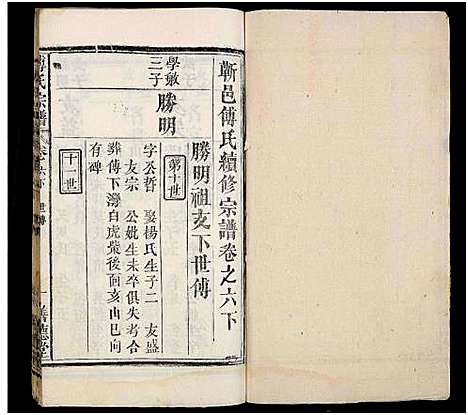 蘄邑傅氏續修宗譜卷之六下
勝明祖支下世傳
第十世
學敏
三子
勝明
字公哲 娶楊氏生子二 友盛
友宗 公妣生未卒俱失考合
葬傅下灣白虎嘴後面亥山巳向
有碑
十一世
傅氏宗譜
卷之六下
世傳
一
善德堂